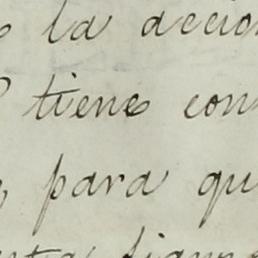 la accion
tiene con
para qu